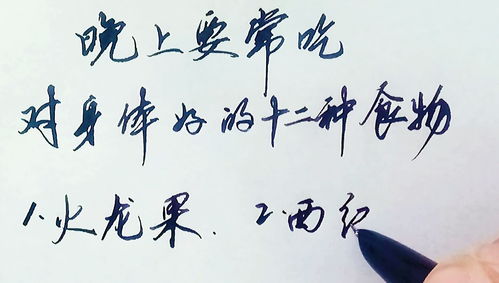 晚上要常吃
对身体好的十二种食物
1.火龙果. 2.西红